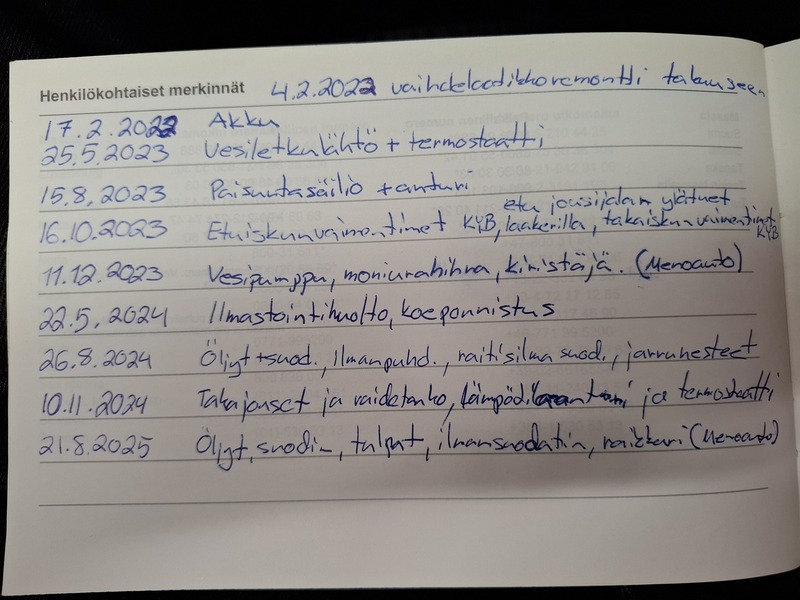 Henkilökohtaiset merkinnät 4.2.2022 vaihdelaatikkoremontti takuuseen
17.2.2022 Akku
25.5.2023 Vesiletkulähtö + termostaatti
15.8.2023 Paisuntasäiliö + anturi
etu jousijalan ylätuet
16.10.2023 Etuiskunvaimentimet KYB, laakerilla, takaiskunvaimentimet KYB
11.12.2023 Vesipumppu, moniurahihna, kiristäjä. (Menoauto)
22.5.2024 Ilmastointihuolto, koeponnistus
26.8.2024 Öljyt + suod., Ilmanpuhd., raitisilma suod., jarrunesteet
10.11.2024 Takajouset ja raidetanko, lämpötila anturi ja termostaatti
21.8.2025 Öljyt, suodin, tulpat, ilmansuodatin, raikkari (Menoauto)